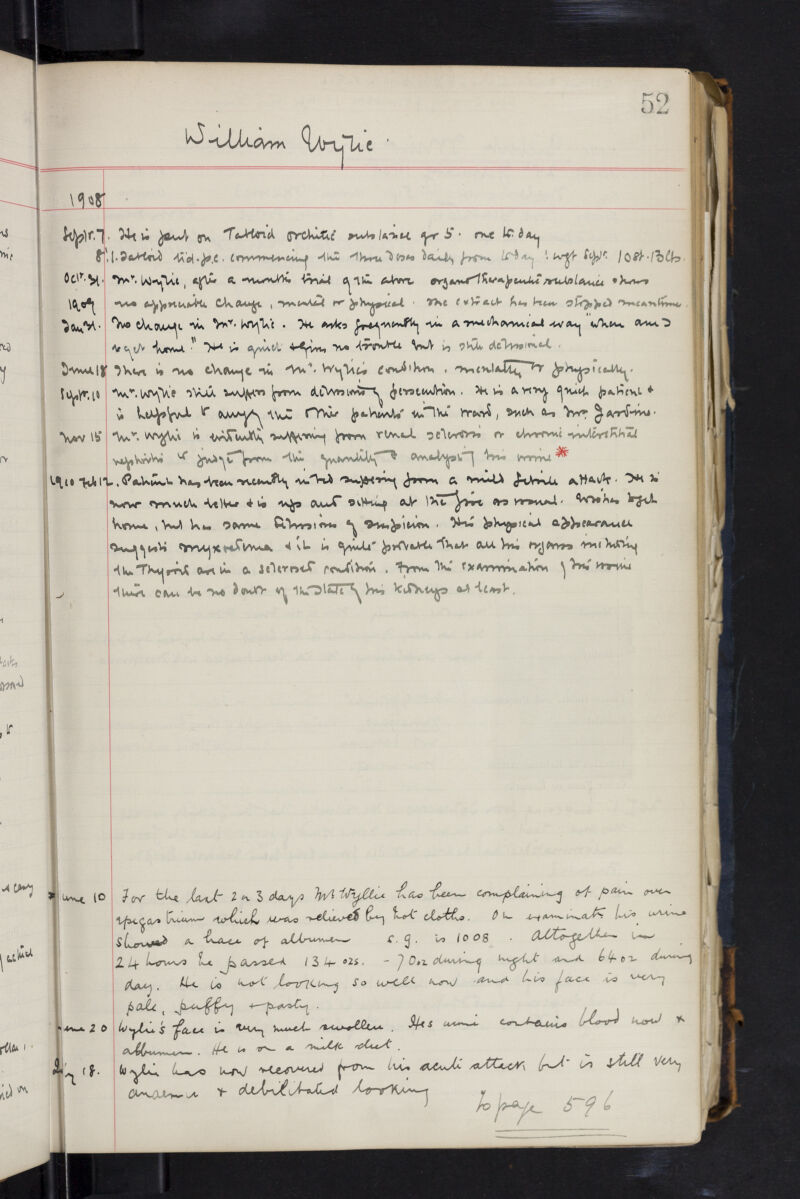 52
William Wylie.
1908
Septr. 7. He is put on Tabloid orchitic substance gr 5. one to day
8. 1. Tabloid t.i.d. p.c. commencing the three doses daily from to day. wgt Septr. 10 st. 13 lbs.
Octr. 31. Mr. Wylie, after a months trial of the above organo Therapeutic substance shows
1909 no appreciable change, mental or physical. The extract has been stopped meantime.
Jan 31. No change in Mr. Wylie. He asks frequently in a mechanical way "when am I
to get home." He is quiet & gives no trouble but is still delusional.
June 18 There is no change in Mr. Wylie's condition, mentally or physically.
Septr. 10 Mr. Wylie still suffers from delusions of persecution. He is a very quiet patient &
is helpful to any of the other patients in the ward, such as Mr. Jardine.
Nov 15 Mr. Wylie is evidently suffering from renal sclerosis or chronic interstitial
nephritis to judge from the quantity & analysis of his urine *
1910 Feb 12. Patient has been recently in bed suffering from a mild febrile attack. He is
now much better & is up and sitting at the fire as usual. Wishes to get
home, but has same delusions of suspicion. His physical appearance
suggests myxoedema & it is quite probable that all his organs including
the Thyroid are in a sclerosed condition. From the examination of his urine
there can be no doubt of the state of his kidneys at least.
June 10 For the last 2 or 3 days Mr Wyllie has been complaining of pain over
epigastrium which was relieved by hot cloths. On examinatn his urine
showed a trace of albumen s.g. is 1008. Altogether in
24 hours he passed 134 ozs. - 70oz during night and 64 oz during
day. He is not looking so well now and his face is very
pale, puffy & pasty.
June 20 Wylie's face is very much swollen. His urine contains blood now &
albumen. He is on a milk diet.
July 18. Wylie has now recovered from his acute attack but is still very
anaemic & debilitated looking
To page 596